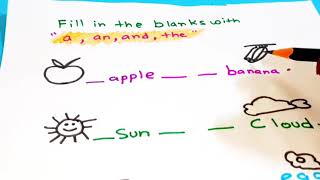 Fill in the blanks with
"a, an, and, the"
_ apple _ _ banana.
_ Sun _ _ Cloud.